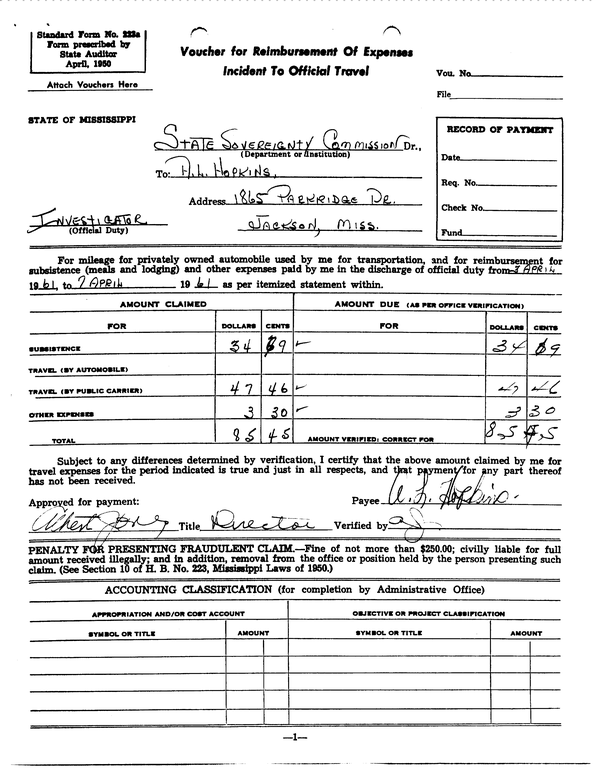 Standard Form No. 223a
Form prescribed by
State Auditor
April, 1950
Attach Vouchers Here
Voucher for Reimbursement Of Expenses
Incident To Official Travel
Vou. No.
File
STATE OF MISSISSIPPI
STATE SOVEREIGNTY COMMISSION Dr.,
(Department or Institution)
To: A.L. HOPKINS,
Address 1865 PARKRIDGE DR.
INVESTIGATOR JACKSON, MISS.
(Official Duty)
RECORD OF PAYMENT
Date
Req. No.
Check No.
Fund
For mileage for privately owned automobile used by me for transportation, and for reimbursement for
subsistence (meals and lodging) and other expenses paid by me in the discharge of official duty from 3 APRIL
1961, to 7 APRIL 1961 as per itemized statement within.
AMOUNT CLAIMED AMOUNT DUE (AS PER OFFICE VERIFICATION)
FOR DOLLARS CENTS FOR DOLLARS CENTS
SUBSISTENCE 34 69 34 69
TRAVEL (BY AUTOMOBILE)
TRAVEL (BY PUBLIC CARRIER) 47 46 47 46
OTHER EXPENSES 3 30 3 30
TOTAL 85 45 AMOUNT VERIFIED: CORRECT FOR 85 45
Subject to any differences determined by verification, I certify that the above amount claimed by me for
travel expenses for the period indicated is true and just in all respects, and that payment for any part thereof
has not been received.
Approved for payment: Payee A. L. Hopkins
Albert Jones Title Director Verified by
PENALTY FOR PRESENTING FRAUDULENT CLAIM.—Fine of not more than $250.00; civilly liable for full
amount received illegally; and in addition, removal from the office or position held by the person presenting such
claim. (See Section 10 of H. B. No. 223, Mississippi Laws of 1950.)
ACCOUNTING CLASSIFICATION (for completion by Administrative Office)
APPROPRIATION AND/OR COST ACCOUNT OBJECTIVE OR PROJECT CLASSIFICATION
SYMBOL OR TITLE AMOUNT SYMBOL OR TITLE AMOUNT
—1—